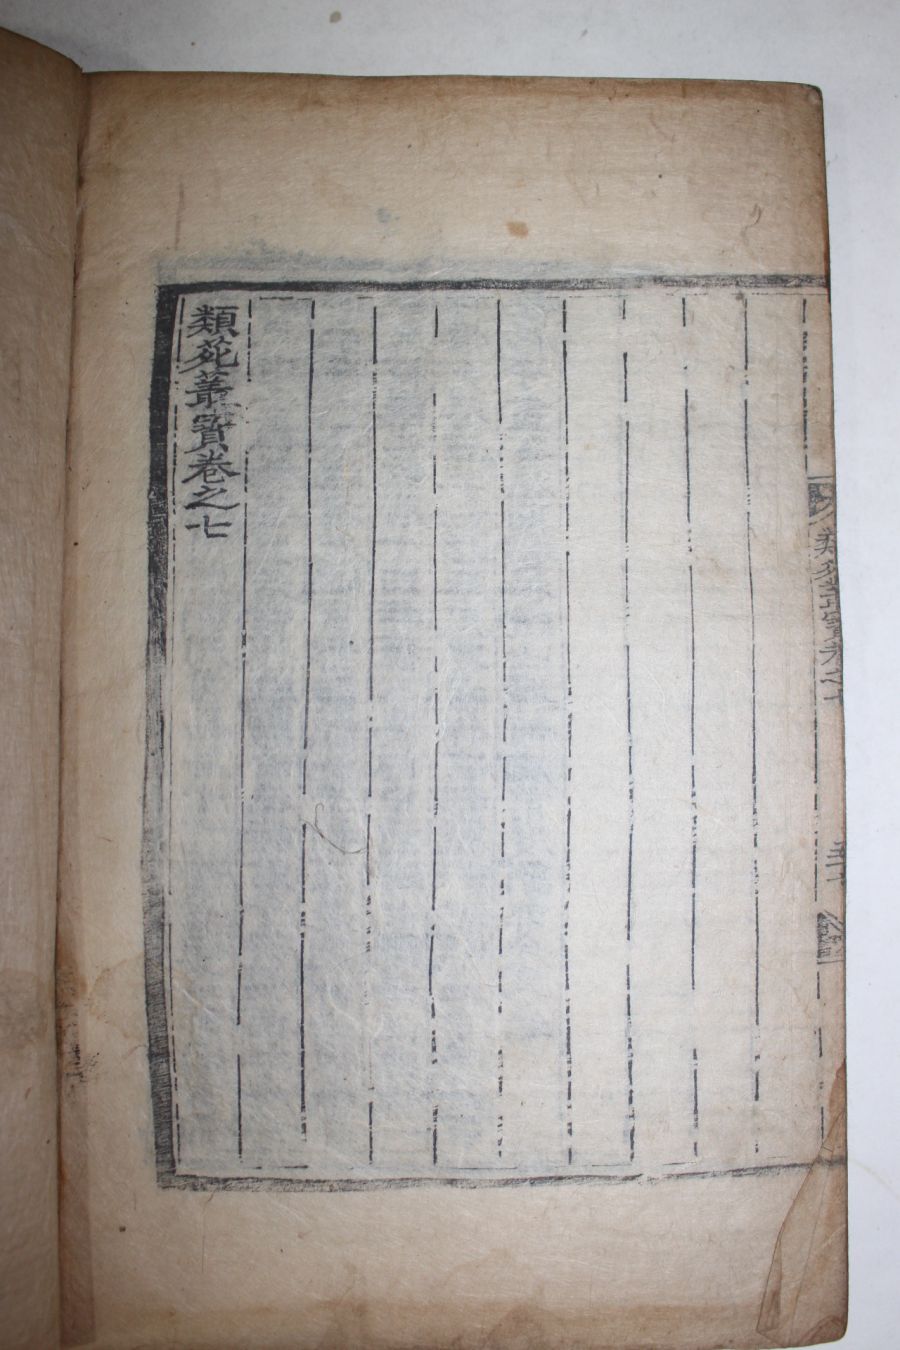 類苑叢寶卷之七
類苑叢寶卷之七